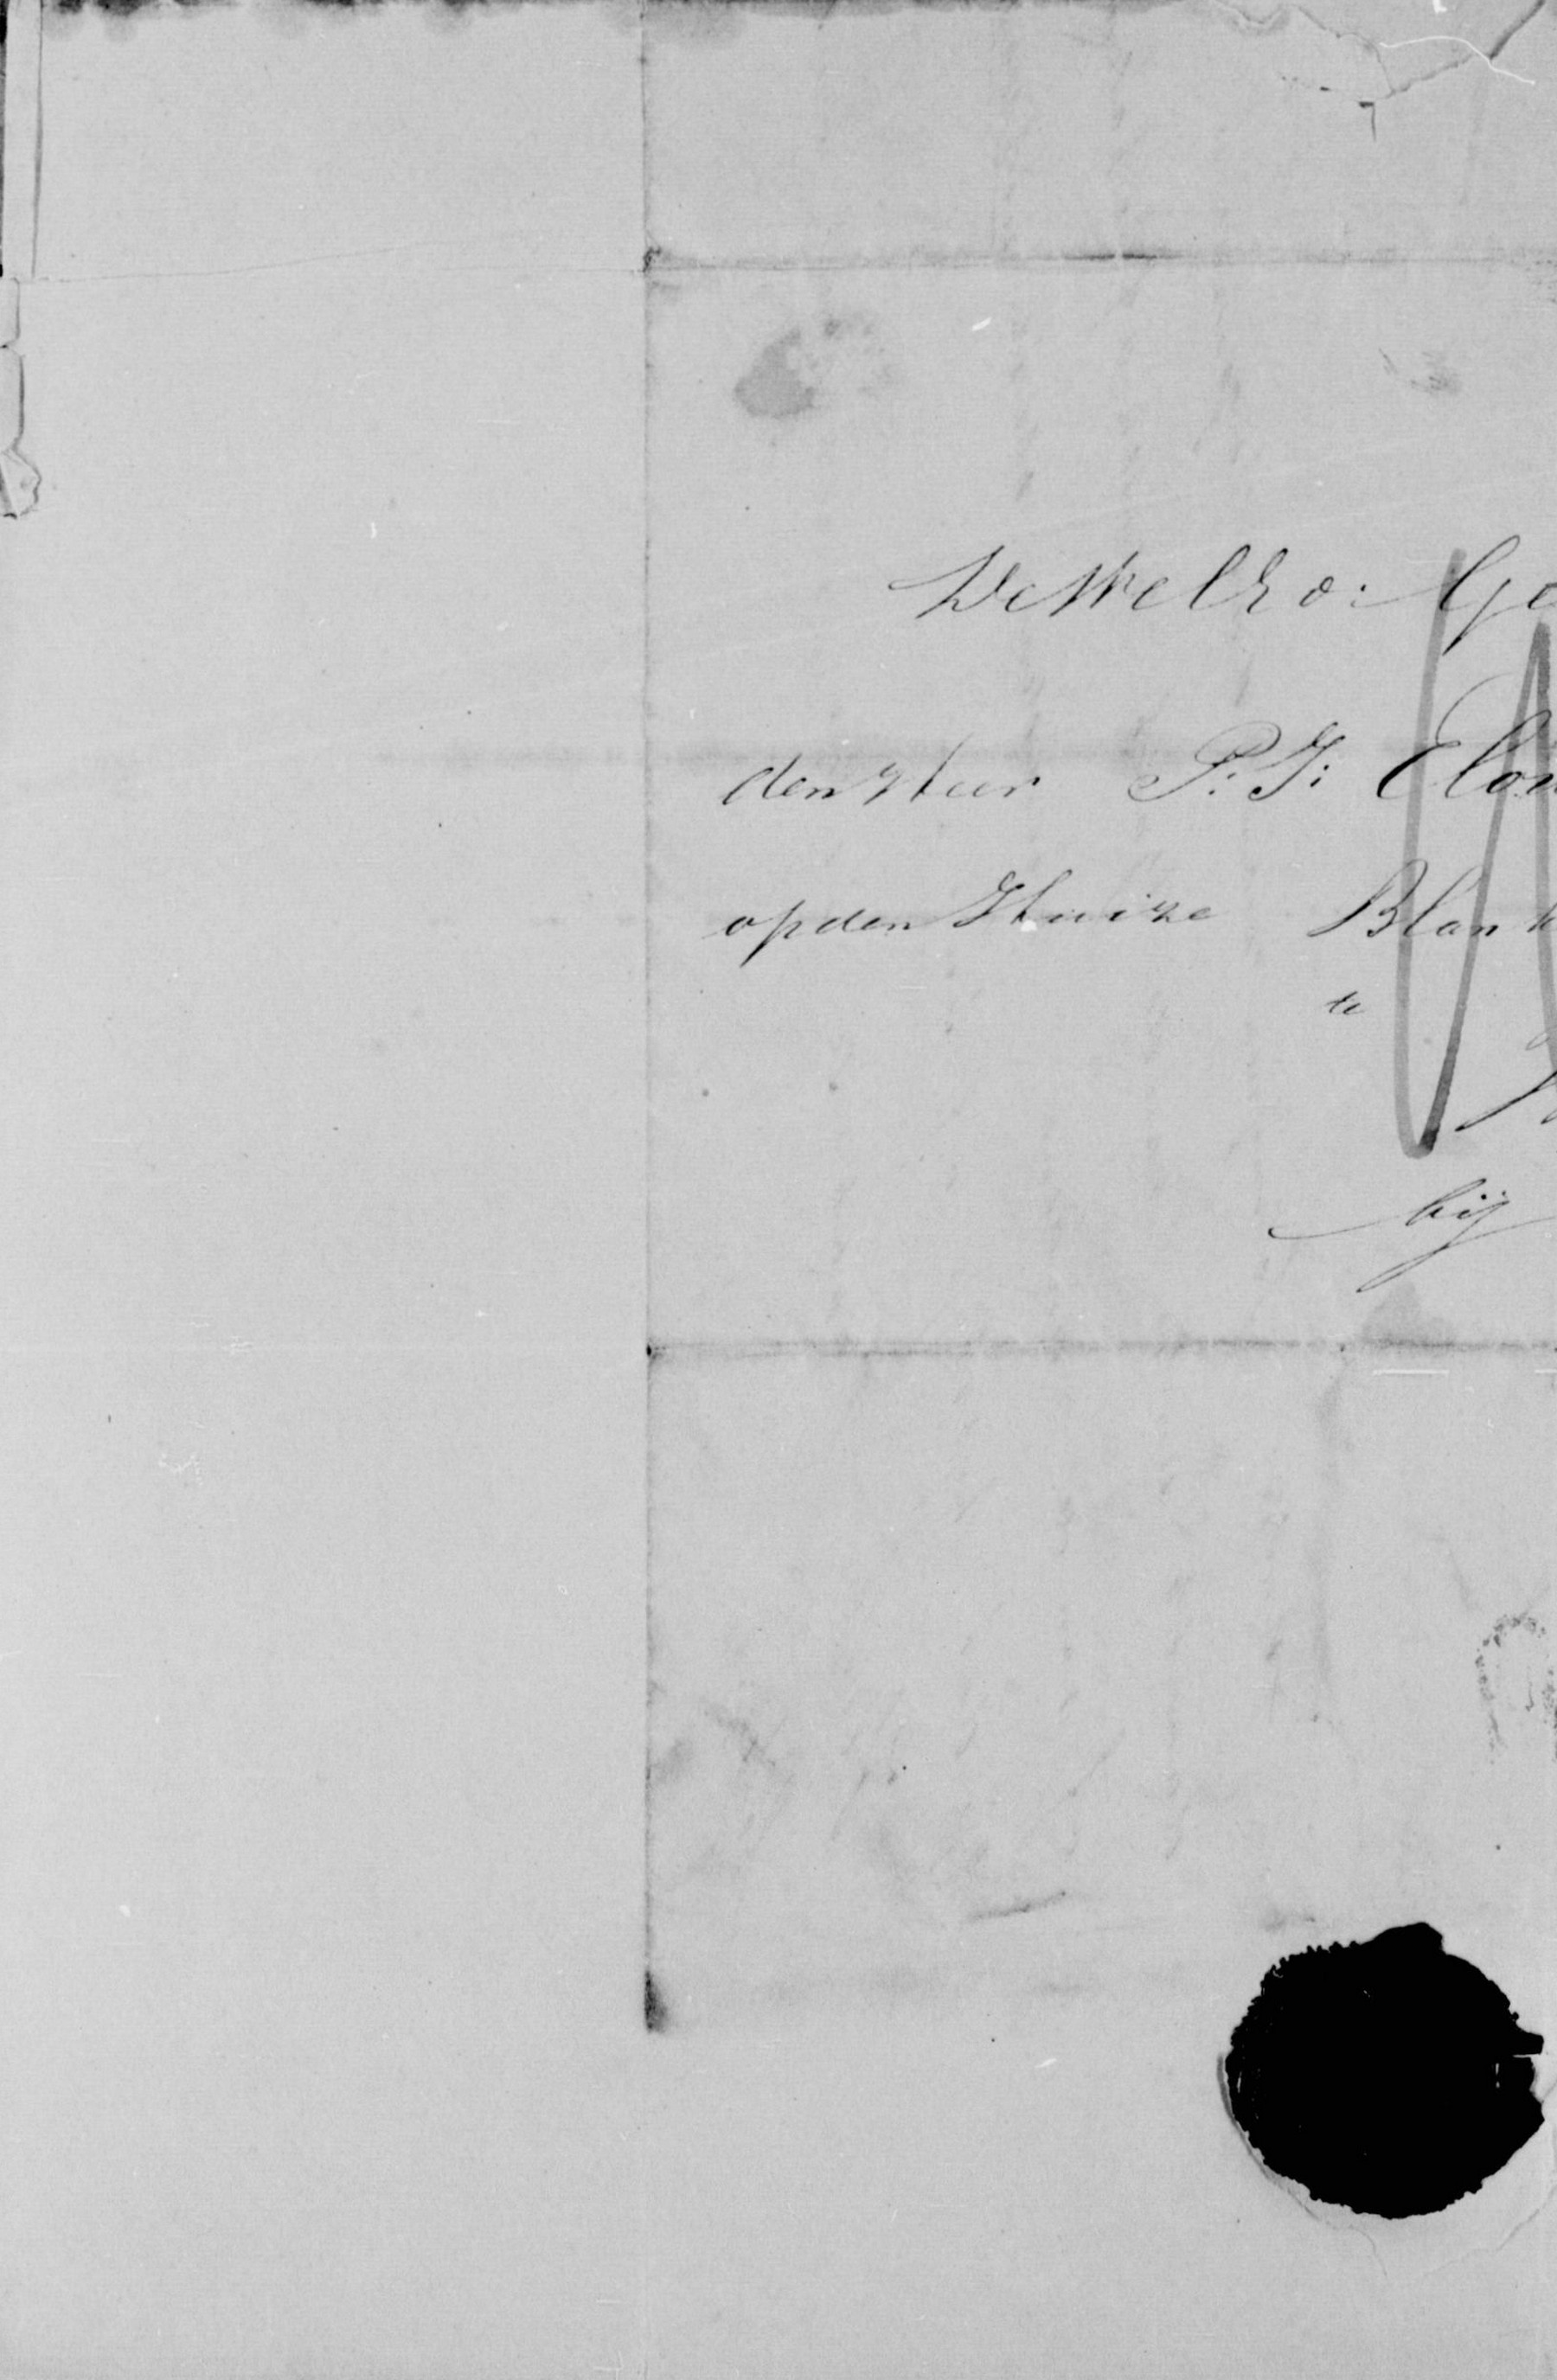 De WelEd: Ge
den Heer P: J: Elou
op den Huize Blank
te
bij